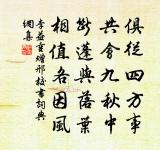 俱從四方事
共會九秋中
斷蓬與落葉
相值各因風
李益重贈邢校書詞典
網集